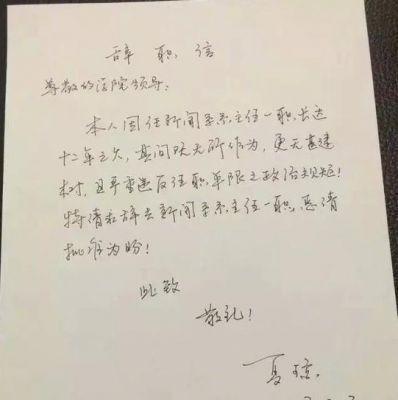 辞职信
尊敬的学院领导:
本人因任新闻系系主任一职,长达
十二年之久,其间既无所作为,更无甚建
树,且严重违反任职年限之政治规矩!
特请求辞去新闻系系主任一职,恳请
批准为盼!
此致
敬礼!
夏琼